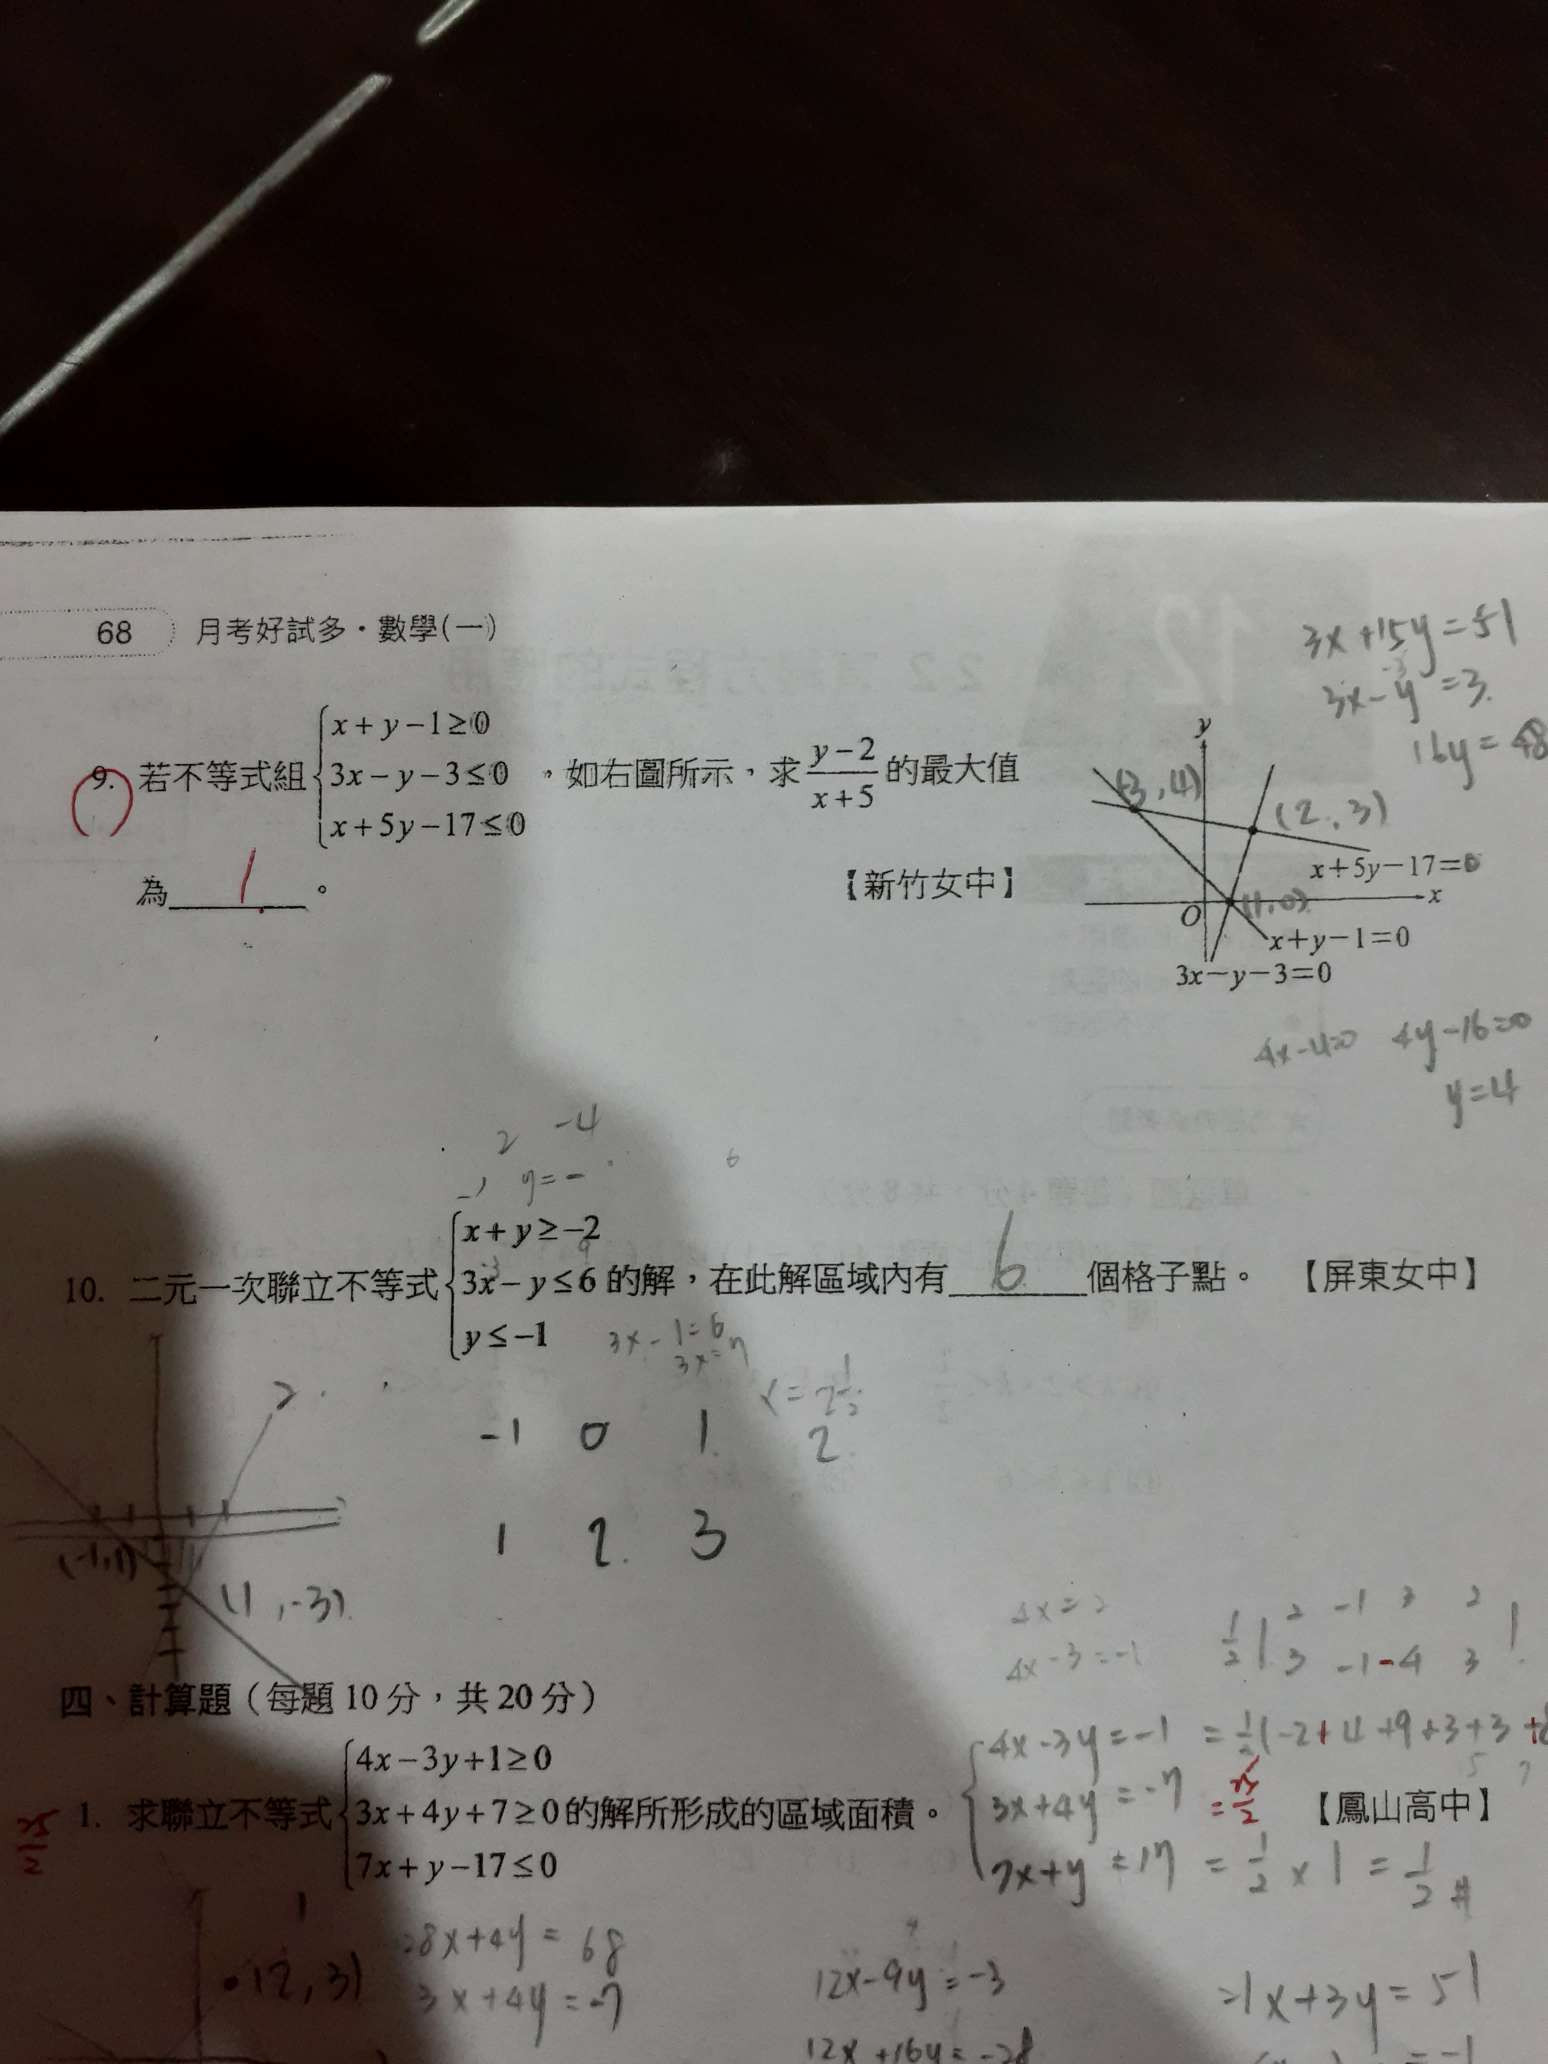 68 月考好試多·數學(一)
3x+15y=51
3x-y=3
16y=48
9. 若不等式組{x+y-1≥0
3x-y-3≤0
x+5y-17≤0
,如右圖所示,求 (y-2)/(x+5) 的最大值
為 1 。 【新竹女中】
y
(-3,4)
(2,3)
x+5y-17=0
x
O
(1,0)
x+y-1=0
3x-y-3=0
4x-4=0 4y-16=0
y=4
2 -4
-1 y=-
6
10. 二元一次聯立不等式{x+y≥-2
3x-y≤6
y≤-1
的解,在此解區域內有 6 個格子點。 【屏東女中】
3x-1=6
3x=7
-1 0 1 2
1 2 3
(1,-3)
4x=2
4x-3=-1
1/2 | 2 -1 3 2
3 -1 -4 3 |
四、計算題(每題 10 分,共 20 分)
1. 求聯立不等式{4x-3y+1≥0
3x+4y+7≥0
7x+y-17≤0
的解所形成的區域面積。 【鳳山高中】
25/2
4x-3y=-1
3x+4y=-7
7x+y=17
=1/2(-2+4+9+3+3+8
=25/2
=1/2×1=1/2#
(2,3)
28x+4y=68
3x+4y=-7
12x-9y=-3
12x+16y=-28
21x+3y=51
=-1